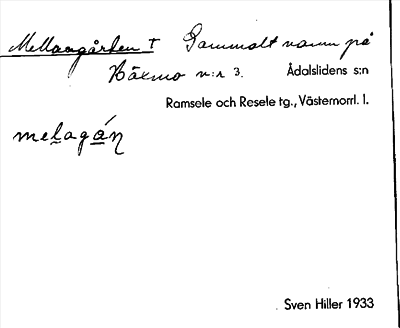 Mellangården † Gammalt namn på
Näsmo n:r 3. Ådalslidens s:n
Ramsele och Resele tg., Västernorrl. l.
melagán
Sven Hiller 1933